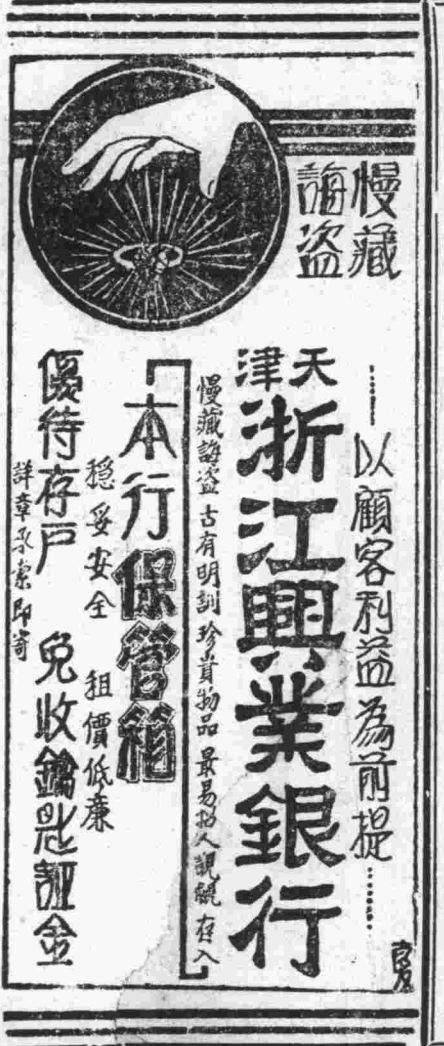 慢藏
誨盜
以顧客利益為前提
天津
浙江興業銀行
慢藏誨盜 古有明訓 珍貴物品 最易招人覬覦 存入
本行保管箱
穩妥安全 租價低廉
優待存戶 免收鑰匙証金
詳章承索即寄